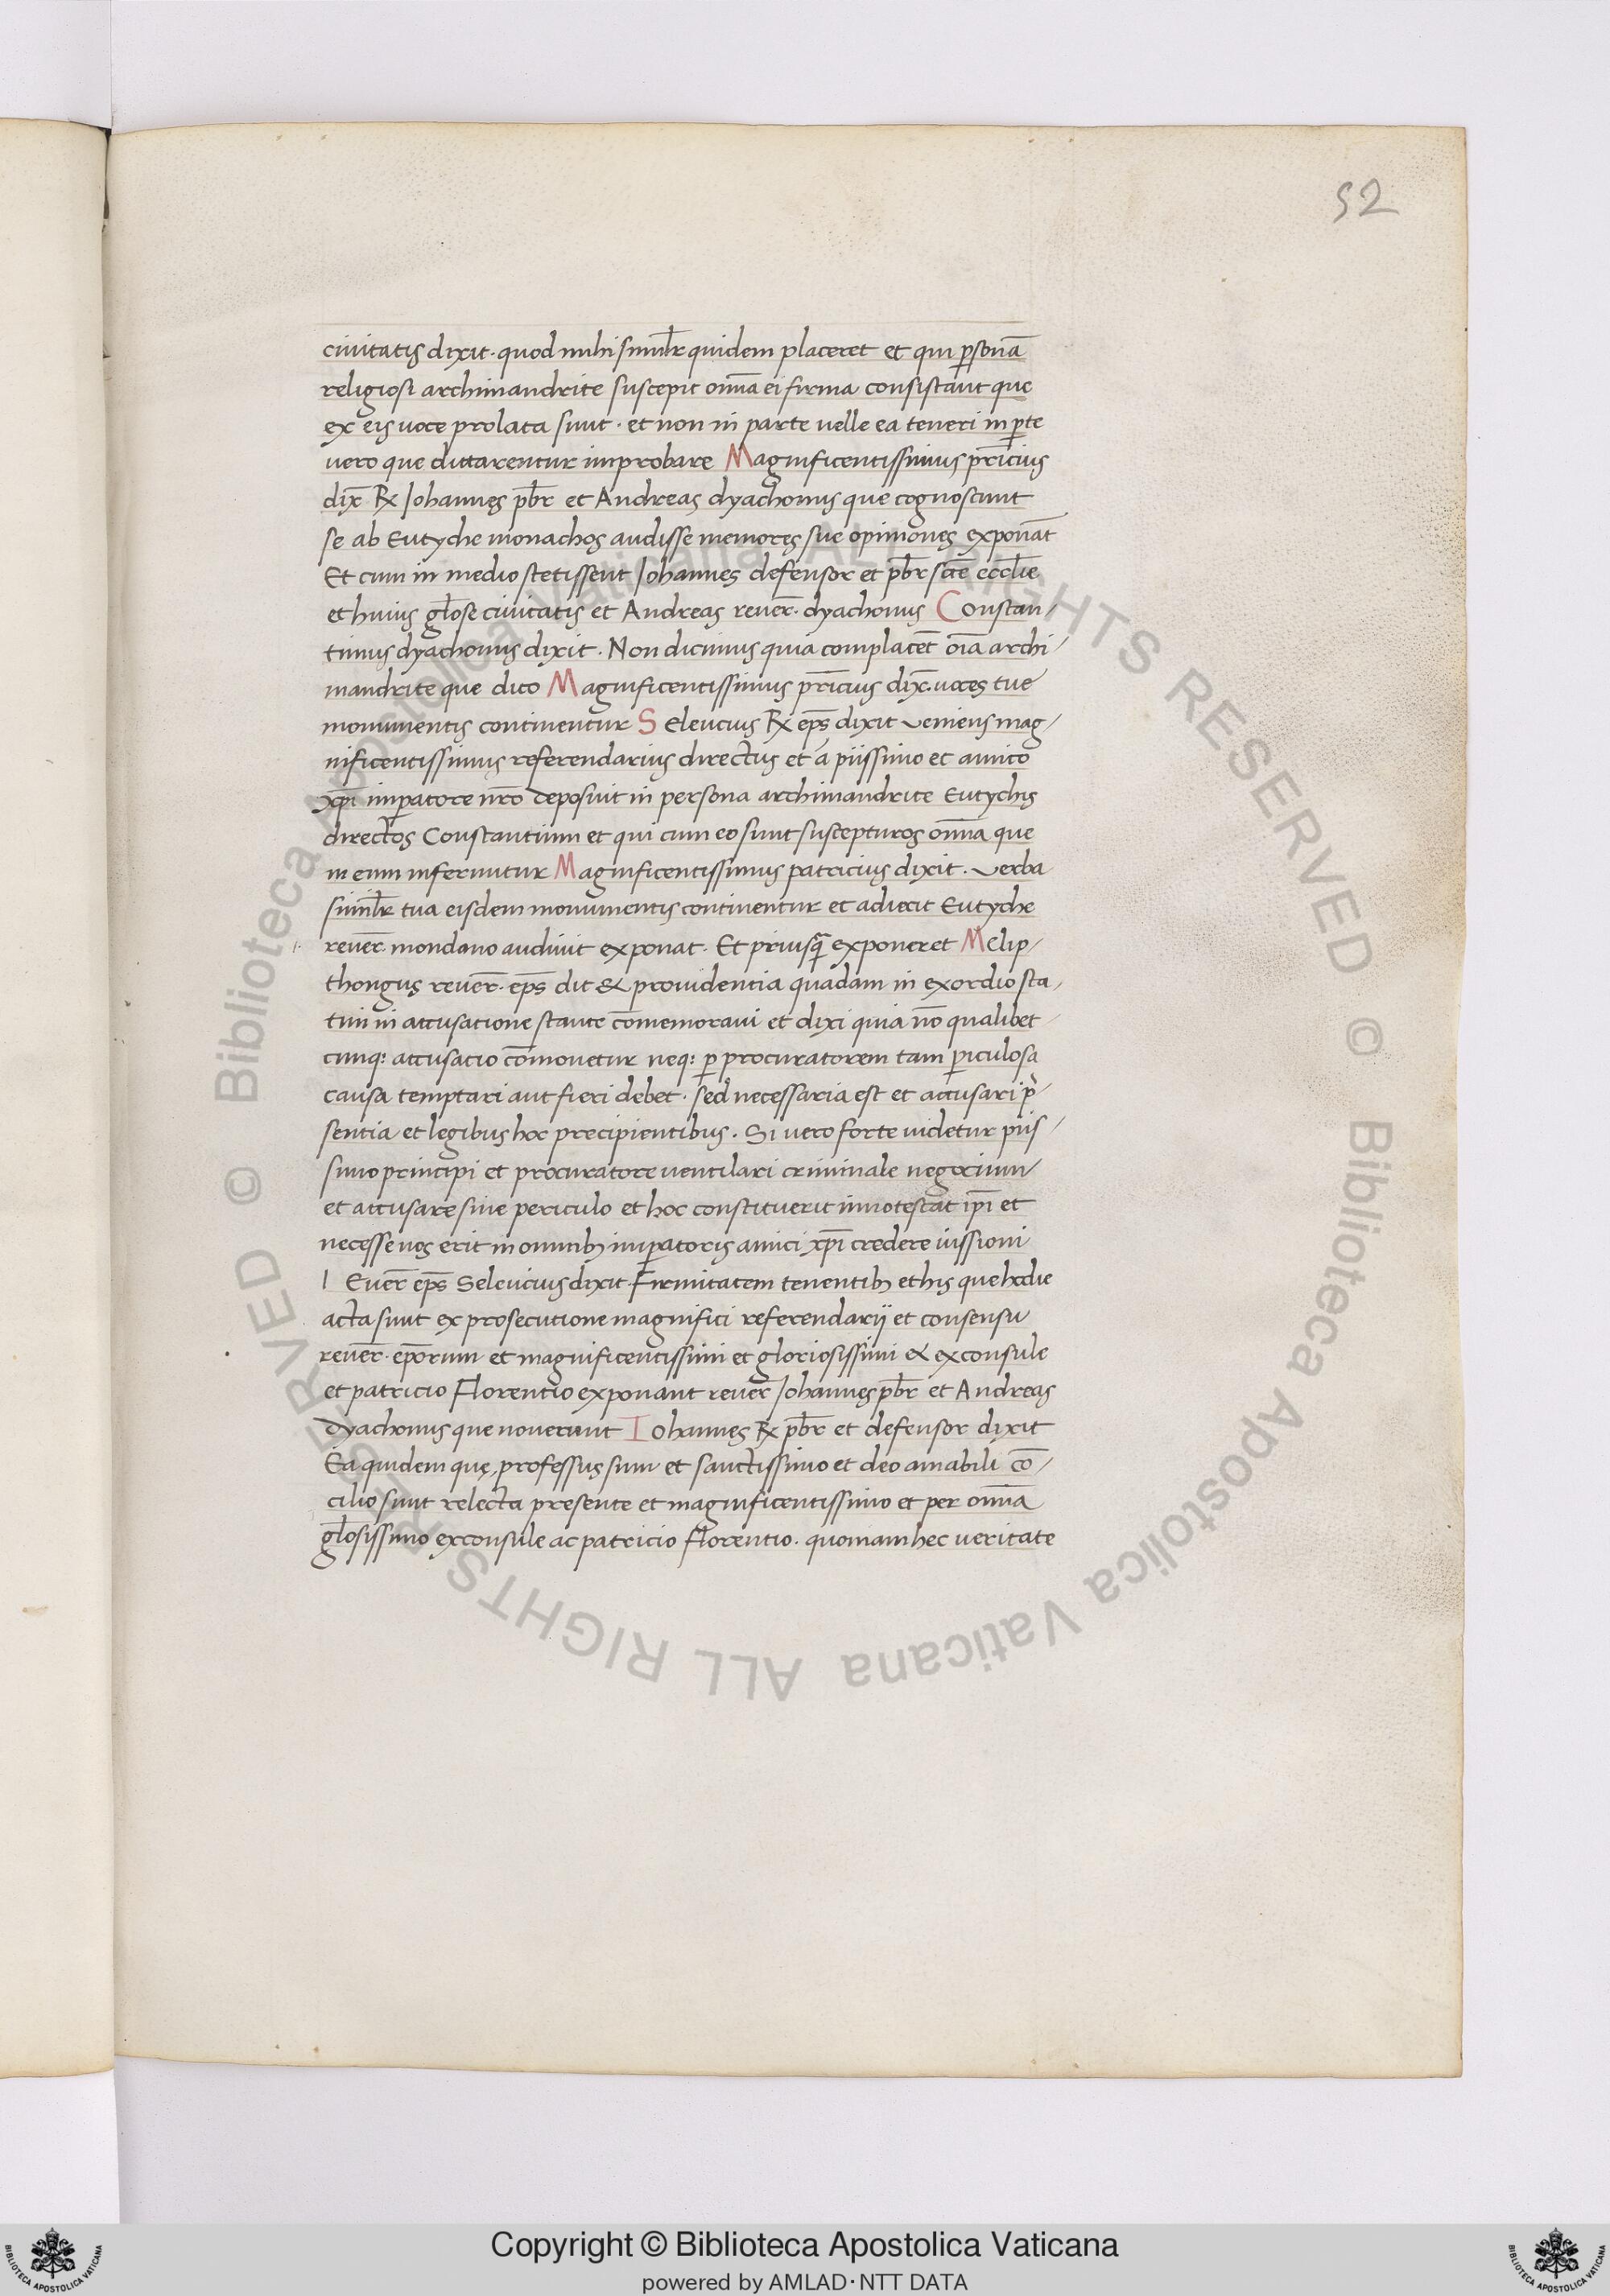 52
ciuitatis dixit. quod mihi simil̅r quidem placeret et qui p̱sona̅
religiosi archimandrite suscepit om̅a ei firma consistant que
ex eis uoce prolata sunt. et non in parte uelle ea teneri in p̱te
uero que dictarentur improbare Magnificentissimus pr̅icius
dix̅ R̷ Johannes pb̅r et Andreas dyachonus que cognoscunt
se ab Eutyche monachos audisse memores sue opiniones expona̅t
Et cum in medio stetissent Johannes defensor et pb̅r sc̅e eccl̅ie
et huius gl̅ose ciuitatis et Andreas reuer̅. dyachonus Constan/
tinus dyachonus dixit. Non dicimus quia complace̅t oi̅a archi/
mandrite que dico Magnificentissimus pr̅icius dix̅. uoces tue
monumentis continentur Seleucius R̷ ep̅s dixit Veniens mag/
nificentissimus referendarius directus et a piissimo et amico
xp̅i imp̱atore nr̅o deposuit in persona archimandrite Eutychis
directos Constantium et qui cum eo sunt suscepturos om̅a que
in eum inferuntur Magnificentissimus patricius dixit. Verba
simil̅r tua eisdem monumentis continentur et adiecit Eutyche
reuer̅. mondano audiuit exponat. Et priusq̅ exponeret Melip/
thongus reuer̅. ep̅s dit & prouidentia quadam in exordio sta/
tim in accusatione stante co̅memoraui et dixi quia no̅ qualibet
cunq: accusacio co̅mouetur neq: p̱ procuratorem tam p̱iculosa
causa temptari aut fieri debet. sed necessaria est et accusari p̅/
sentia et legibus hoc precipientibus. Si uero forte uidetur piis/
simo principi et procuratore uentilari criminale negocium
et accusare sine periculo et hoc constituerit innotescat ip̅i et
necesse nos erit in omnib; imp̱atoris amici xp̅i credere iussioni
I Euer̅ ep̅s Seleucius dixit. Firmitatem tenentib; et his que hodie
acta sunt ex prosecutione magnifici referendarij et consensu
reuer̅. ep̅orum et magnificentissimi et gloriosissimi & exconsule
et patricio Florentio exponant reuer̅ Johannes pb̅r et Andreas
dyachonus que nouerunt Iohannes R̷ pb̅r et defensor dixit
Ea quidem quę, professus sum et sanctissimo et deo amabili co̅/
cilio sunt relecta presente et magnificentissimo et per om̅a
gl̅osissimo exconsule ac patricio Florentio. quoniam hec ueritate
© Biblioteca Apostolica Vaticana ALL RIGHTS RESERVED © Biblioteca Apostolica Vaticana ALL RIGHTS RESERVED
Copyright © Biblioteca Apostolica Vaticana
powered by AMLAD·NTT DATA
BIBLIOTECA APOSTOLICA VATICANA
BIBLIOTECA APOSTOLICA VATICANA